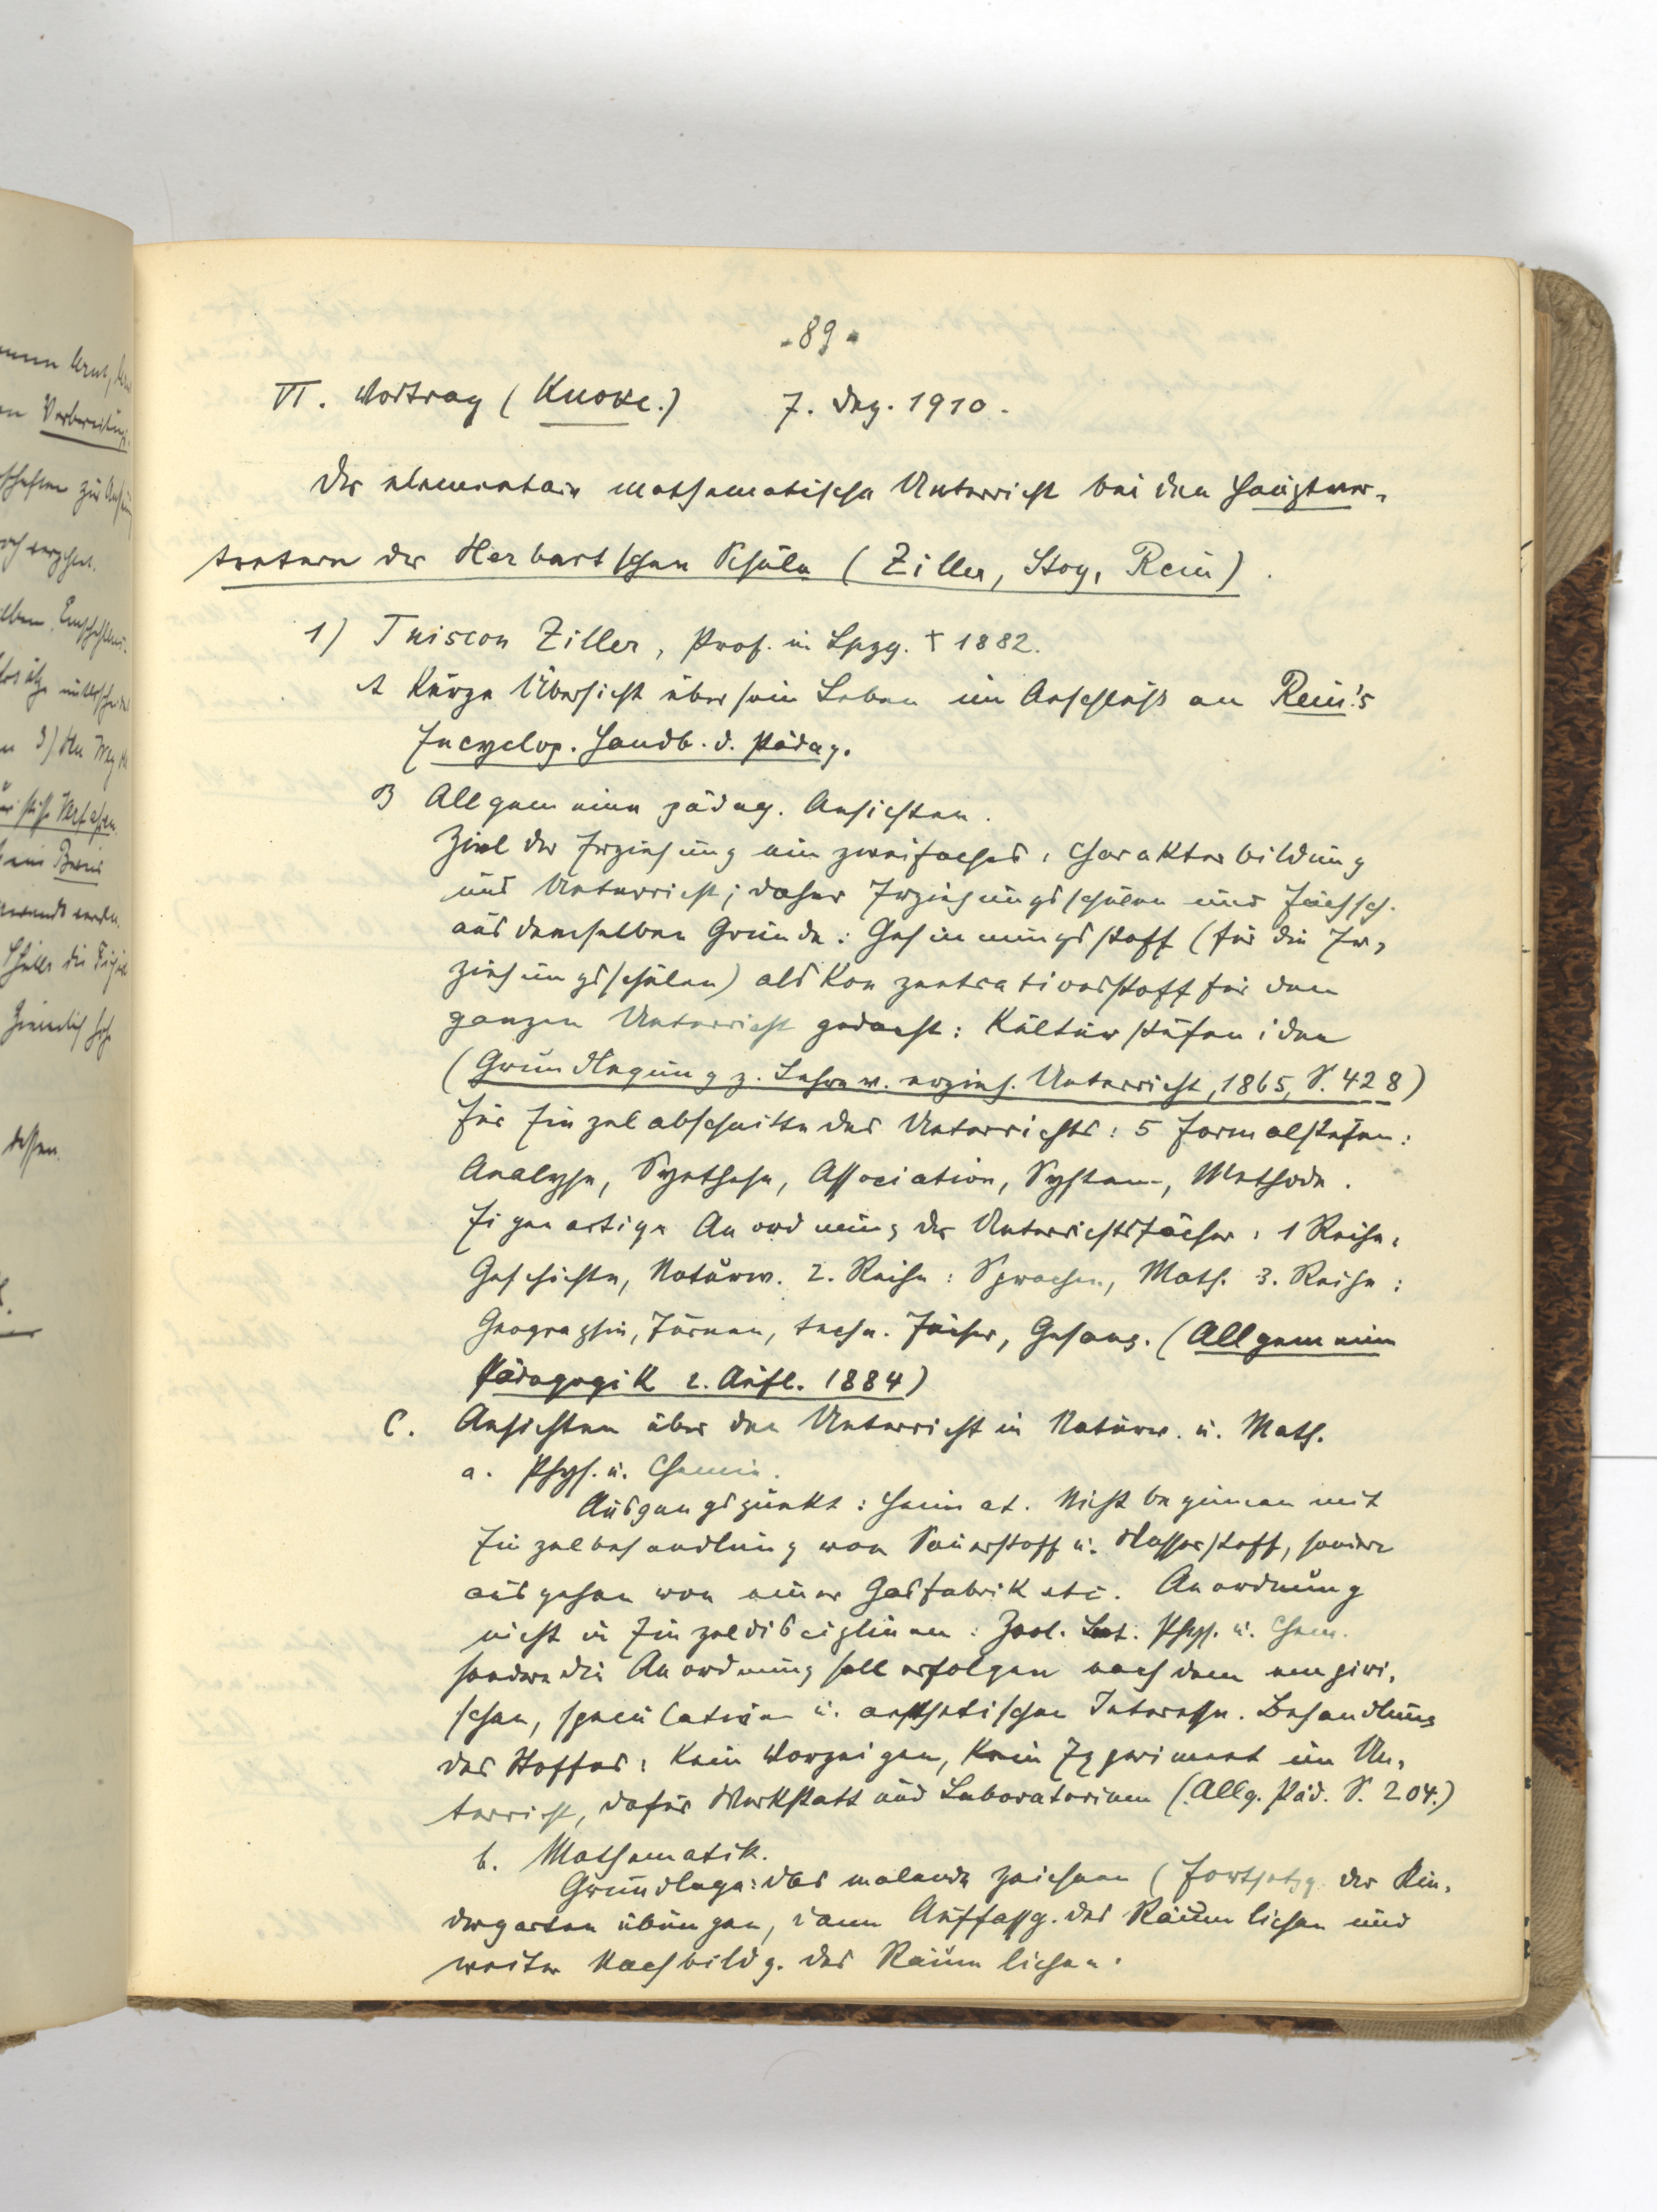 - 89 -
VI. Vortrag (Knoke.) 7. Dez. 1910.
Der elementare mathematische Unterricht bei den Hauptver-
tretern der Herbartschen Schule (Ziller, Stoy, Rein).
1) Tuiscon Ziller, Prof. in Lpzg. † 1882.
A Kurze Übersicht über sein Leben im Anschluß an Rein's
Encyclop. Handb. d. Pädag.
B Allgemeine pädag. Ansichten.
Ziel der Erziehung ein zweifaches: Charakterbildung
und Unterricht; daher Erziehungsschulen und Fachsch.
aus demselben Grunde: Gesinnungsstoff (für die Er-
ziehungsschulen) als Konzentrationsstoff für den
ganzen Unterricht gedacht: Kulturstufen; den
(Grundlegung z. Lehre v. erzieh. Unterricht, 1865, S. 428)
für Einzelabschnitte des Unterrichts: 5 Formalstufen:
Analyse, Synthese, Association, System, Methode.
Eigenartige Anordnung der Unterrichtsfächer: 1 Reihe:
Geschichte, Naturw. 2. Reihe: Sprachen, Math. 3. Reihe:
Geographie, Turnen, techn. Fächer, Gesang. (Allgemeine
Pädagogik 2. Aufl. 1884)
C. Ansichten über den Unterricht in Naturw. u. Math.
a. Phys. u. Chemie.
Ausgangspunkt: Heimat. Nicht beginnen mit
Einzelbehandlung von Sauerstoff u. Wasserstoff, sondern
ausgehen von einer Gasfabrik etc. Anordnung
nicht in Einzeldisciplinen: Zool. Bot. Phys. u. Chem.
sondern die Anordnung soll erfolgen nach dem empiri-
schen, speculativen u. aesthetischen Interesse. Behandlung
des Stoffes: Kein Vorzeigen, kein Experiment im Un-
terricht, dafür Werkstatt und Laboratorium (Allg. Päd. S. 204.)
b. Mathematik.
Grundlage: das malende Zeichnen (Fortsetzg. der Kin-
dergartenübungen, dann Auffassg. des Räumlichen und
weiter Nachbildg. des Räumlichen.